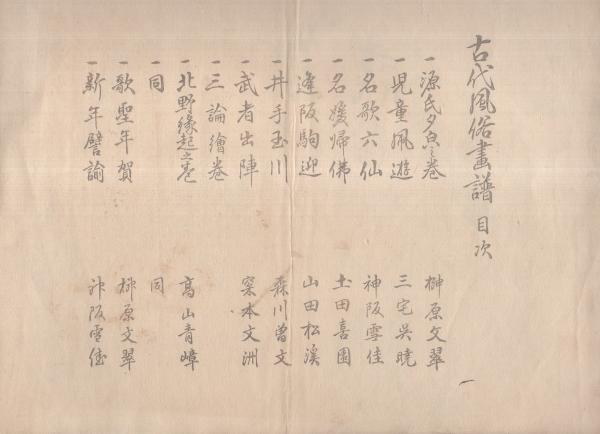 古代風俗畫譜 目次
一 源氏夕㒵之卷 榊原文翠
一 児童凧遊 三宅呉暁
一 名歌六仙 神阪雪佳
一 名媛帰佛 土田喜園
一 逢阪駒迎 山田松溪
一 井手玉川 森川曽文
一 武者出陣 深本文洲
一 三論繪巻
一 北野緣起之巻 髙山青嶂
一 同 同
一 歌聖年賀 榊原文翠
一 新年譬諭 神阪雪佳